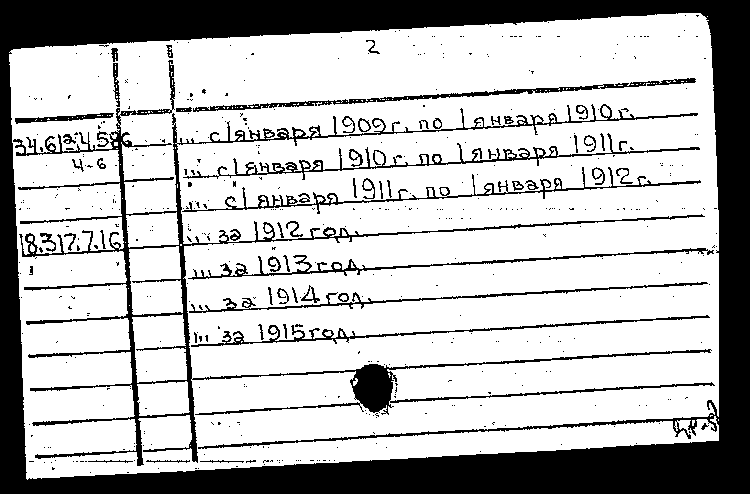 2
34.612.4.586 ,,, с 1 января 1909 г. по 1 января 1910 г.
4-6 ,,, с 1 января 1910 г. по 1 января 1911 г.
,,, с 1 января 1911 г. по 1 января 1912 г.
18.317.7.16 ,,, за 1912 год.
,,, за 1913 год.
,,, за 1914 год.
,,, за 1915 год.